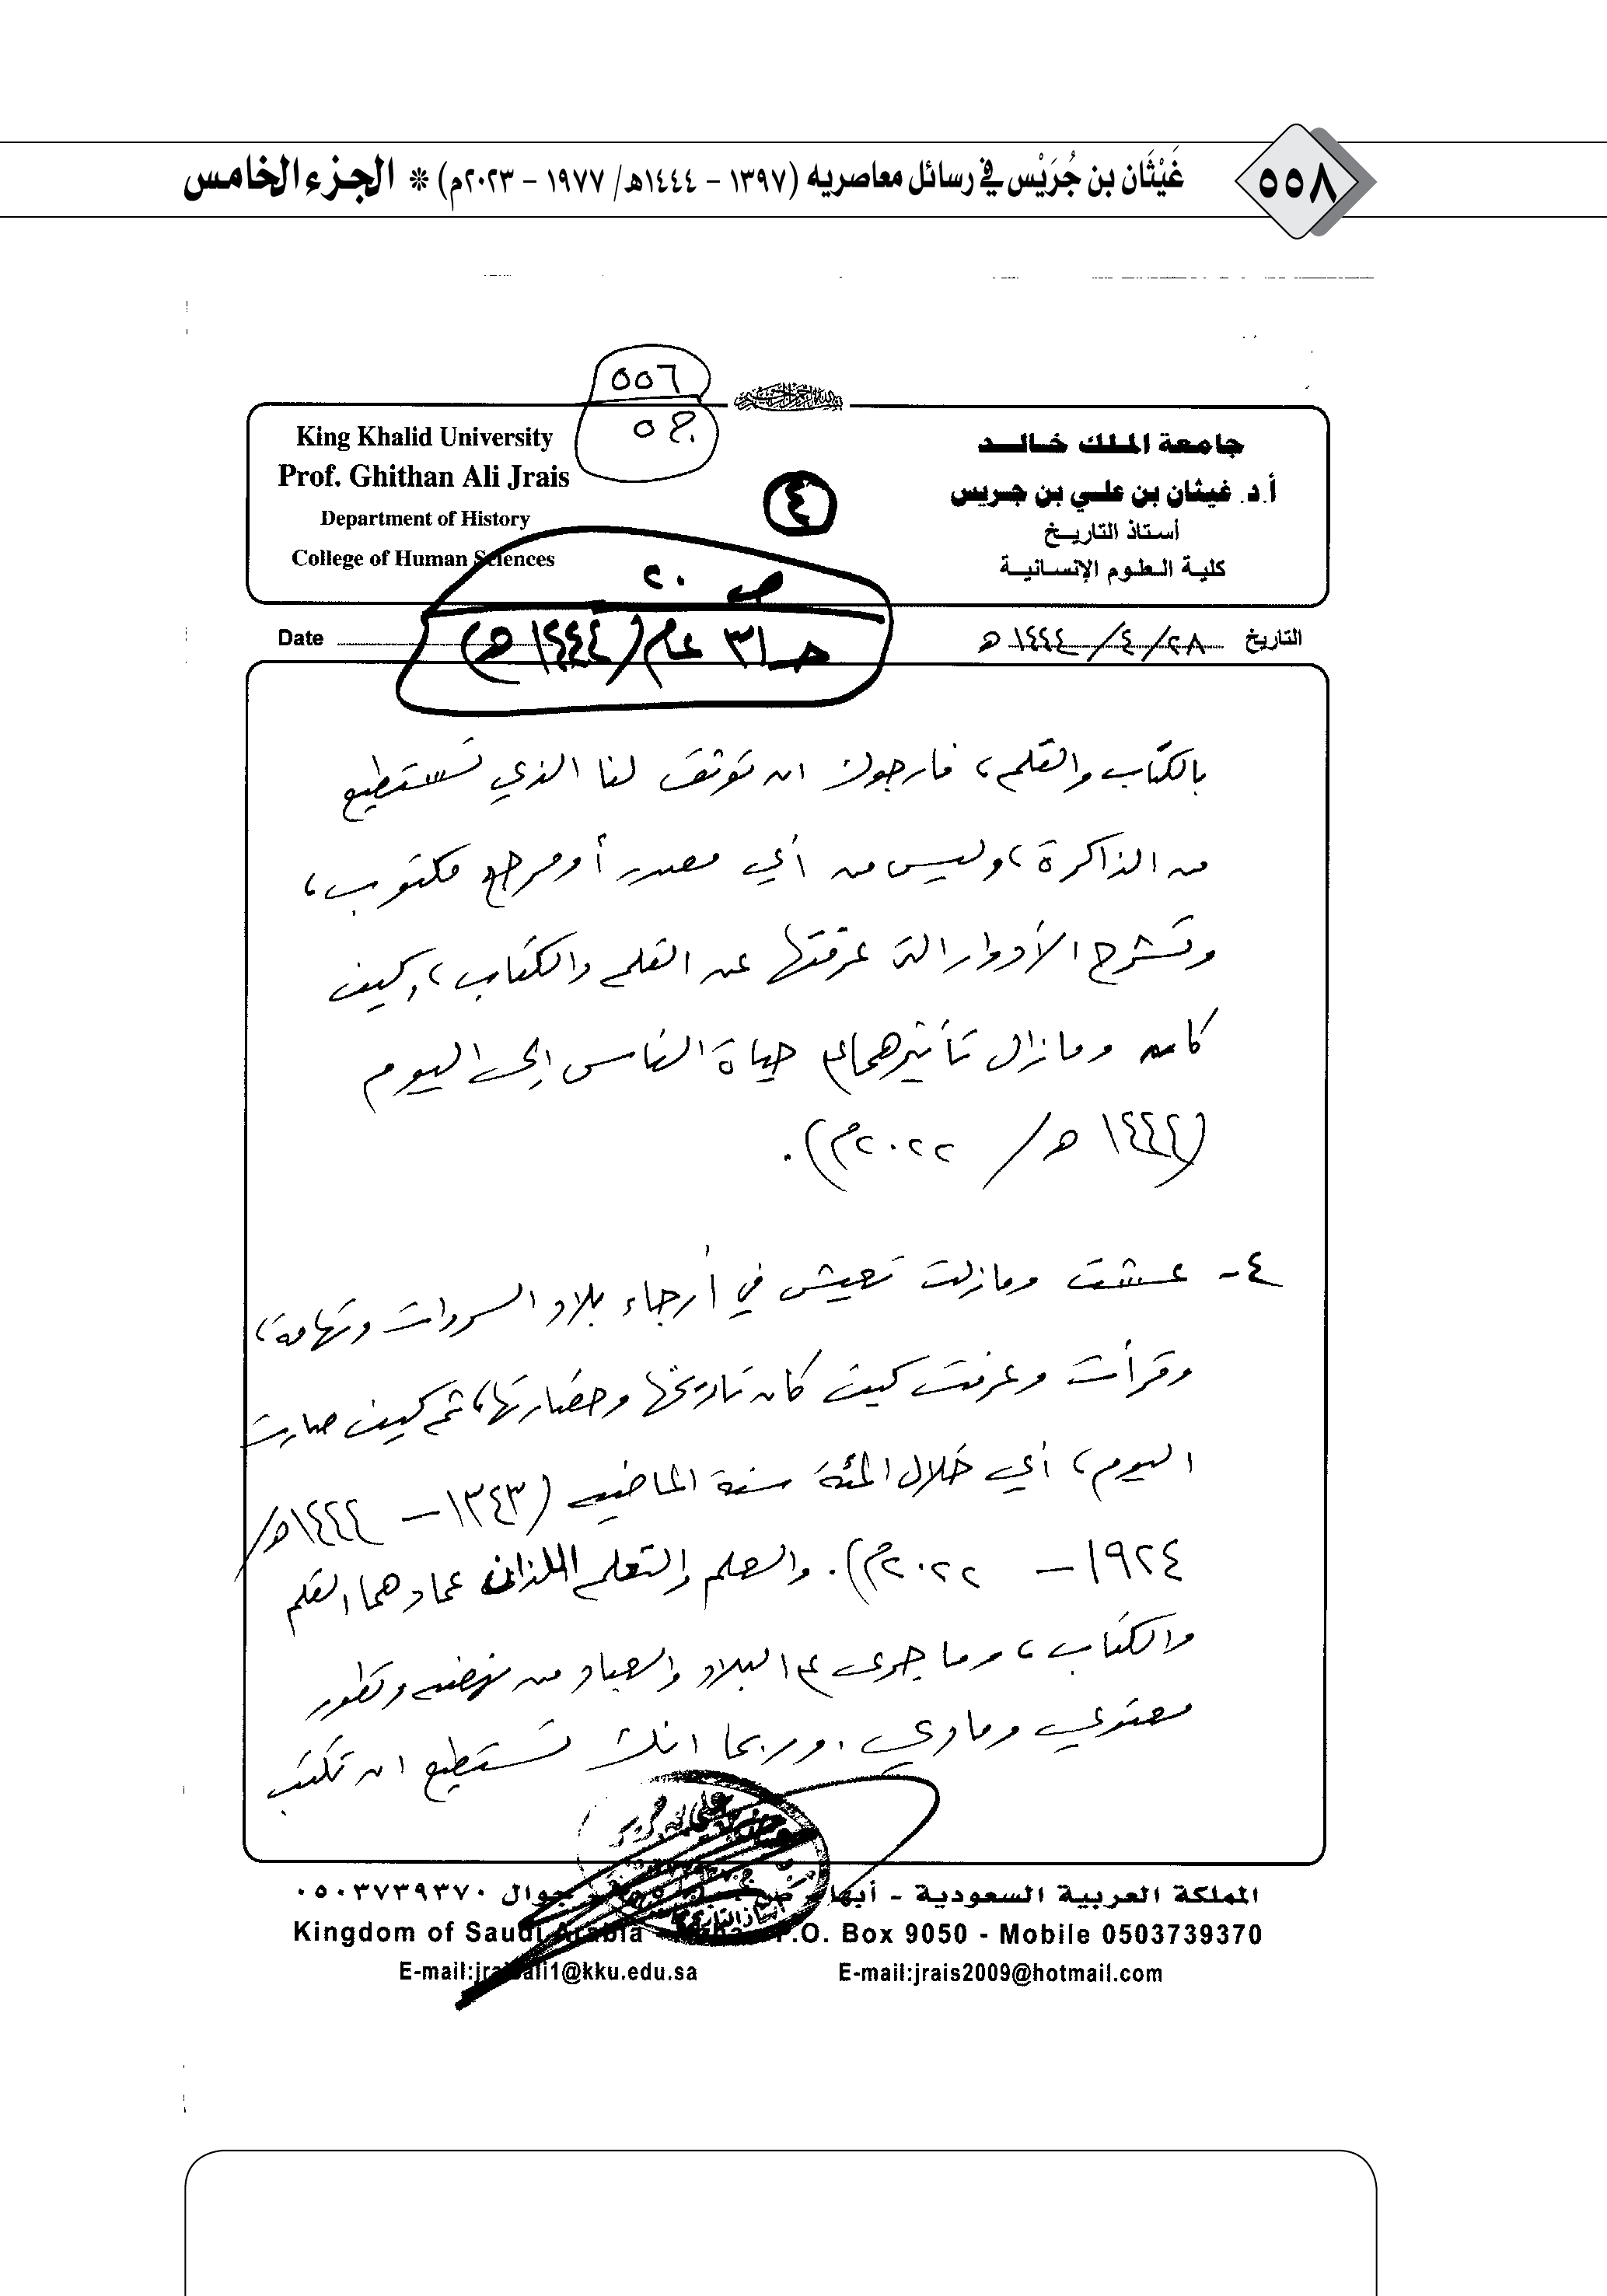 غَيْثَان بن جُرَيْس في رسائل معاصريه (١٣٩٧ - ١٤٤٤هـ/ ١٩٧٧ - ٢٠٢٣م) * الجزء الخامس
٥٥٨
٥٥٦
ج ٥
King Khalid University
Prof. Ghithan Ali Jrais
Department of History
College of Human Sciences
٤
جامعة الملك خالد
أ.د. غيثان بن علي بن جريس
أستاذ التاريخ
كلية العلوم الإنسانية
ص ٢٠
حـ ٣١ عام (١٤٤٤ هـ)
Date
التاريخ ٢٨/ ٤/ ١٤٤٤ هـ
بالكتاب والقلم، فارجوك ان توثق لنا الذي تستطيع
من الذاكرة، وليس من أي مصدر أو مرجع مكتوب،
وتشرح الأدوار التي عرفتها عن القلم والكتاب، وكيف
كان وما زال تأثيرهما في حياة الناس إلى اليوم
(١٤٤٤ هـ/ ٢٠٢٢م).
٤- عشت ومازلت تعيش في أرجاء بلاد السروات وتهامة،
وقرأت وعرفت كيف كان تاريخها وحضارتها، ثم كيف صارت
اليوم، أي خلال المئة سنة الماضية (١٣٤٣ - ١٤٤٤هـ/
١٩٢٤ - ٢٠٢٢م). والعلم والتعلم اللذان عمادهما القلم
والكتاب، وما جرى في البلاد والعباد من نهضة وتطور
معنوي ومادي. وربما انك تستطيع ان تكتب
المملكة العربية السعودية - أبها - جوال ٠٥٠٣٧٣٩٣٧٠
Kingdom of Saudi Arabia - Abha - P.O. Box 9050 - Mobile 0503739370
E-mail:jraisali1@kku.edu.sa E-mail:jrais2009@hotmail.com